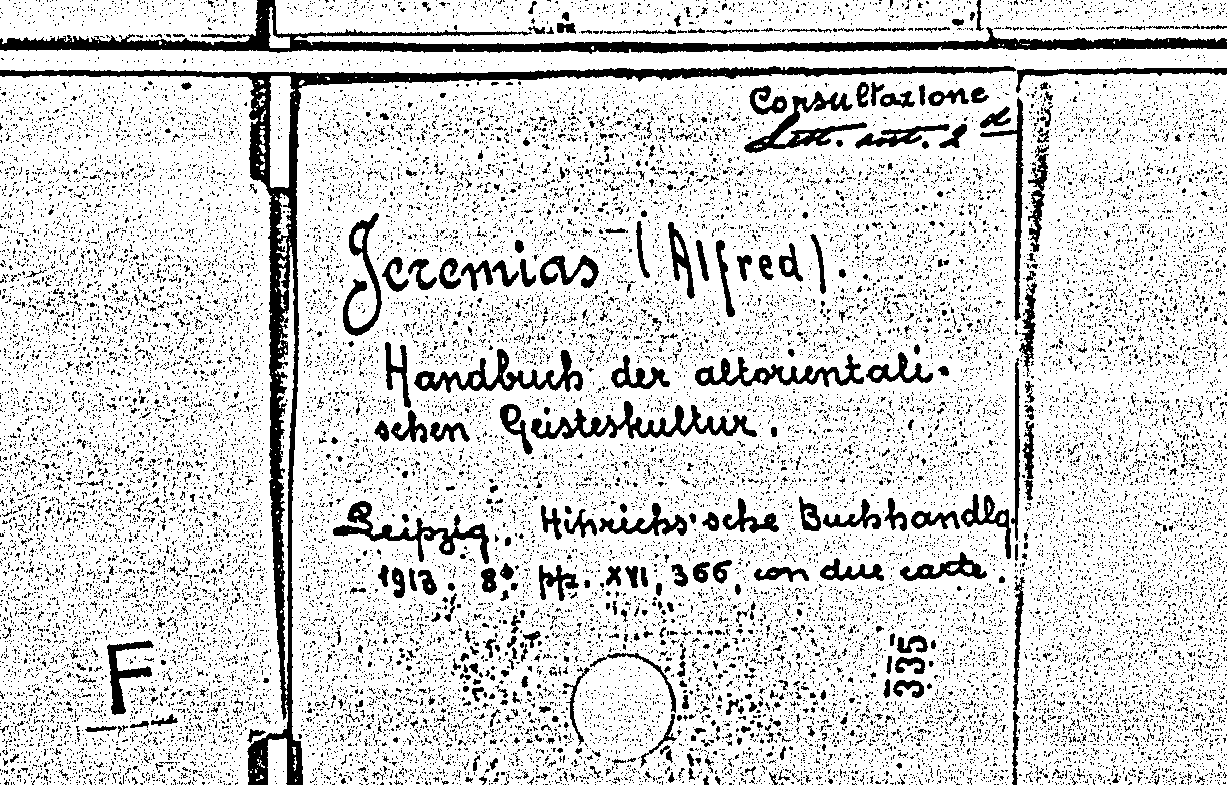 Consultazione
Lett. ant. 2 d
Jeremias (Alfred).
Handbuch der altorientali-
schen Geisteskultur.
Leipzig, Hinrichs'sche Buchhandlg.
1913. 8°. pp. XVI, 366, con due carte.
335
F